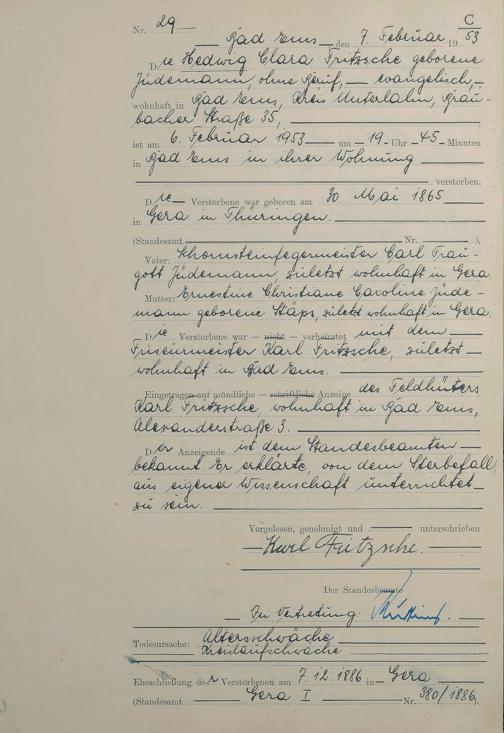 C
Nr. 29
Bad Ems, den 7. Februar 1953
Die Hedwig Clara Fritzsche geborene
Jüdemann, ohne Beruf, evangelisch,
wohnhaft in Bad Ems, Kreis Unterlahn, Grau-
bacher Straße 35,
ist am 6. Februar 1953 um 19 Uhr 45 Minuten
in Bad Ems in ihrer Wohnung
verstorben.
Die Verstorbene war geboren am 30. Mai 1865
in Gera in Thüringen.
(Standesamt Nr. ),
Vater: Schornsteinfegermeister Carl Trau-
gott Jüdemann, zuletzt wohnhaft in Gera.
Mutter: Ernestine Christiane Caroline Jüde-
mann geborene Stäps, zuletzt wohnhaft in Gera.
Die Verstorbene war – nicht – verheiratet mit dem
Friseurmeister Karl Fritzsche, zuletzt
wohnhaft in Bad Ems.
Eingetragen auf mündliche – schriftliche Anzeige des Feldhüters
Karl Fritzsche, wohnhaft in Bad Ems,
Alexanderstraße 3.
Der Anzeigende ist dem Standesbeamten
bekannt. Er erklärte, von dem Sterbefall
aus eigener Wissenschaft unterrichtet
zu sein.
Vorgelesen, genehmigt und unterschrieben
Karl Fritzsche.
Der Standesbeamte
In Vertretung:
Todesursache: Altersschwäche
Kreislaufschwäche
Eheschließung der Verstorbenen am 7.12.1886 in Gera
(Standesamt Gera I Nr. 380/1886).